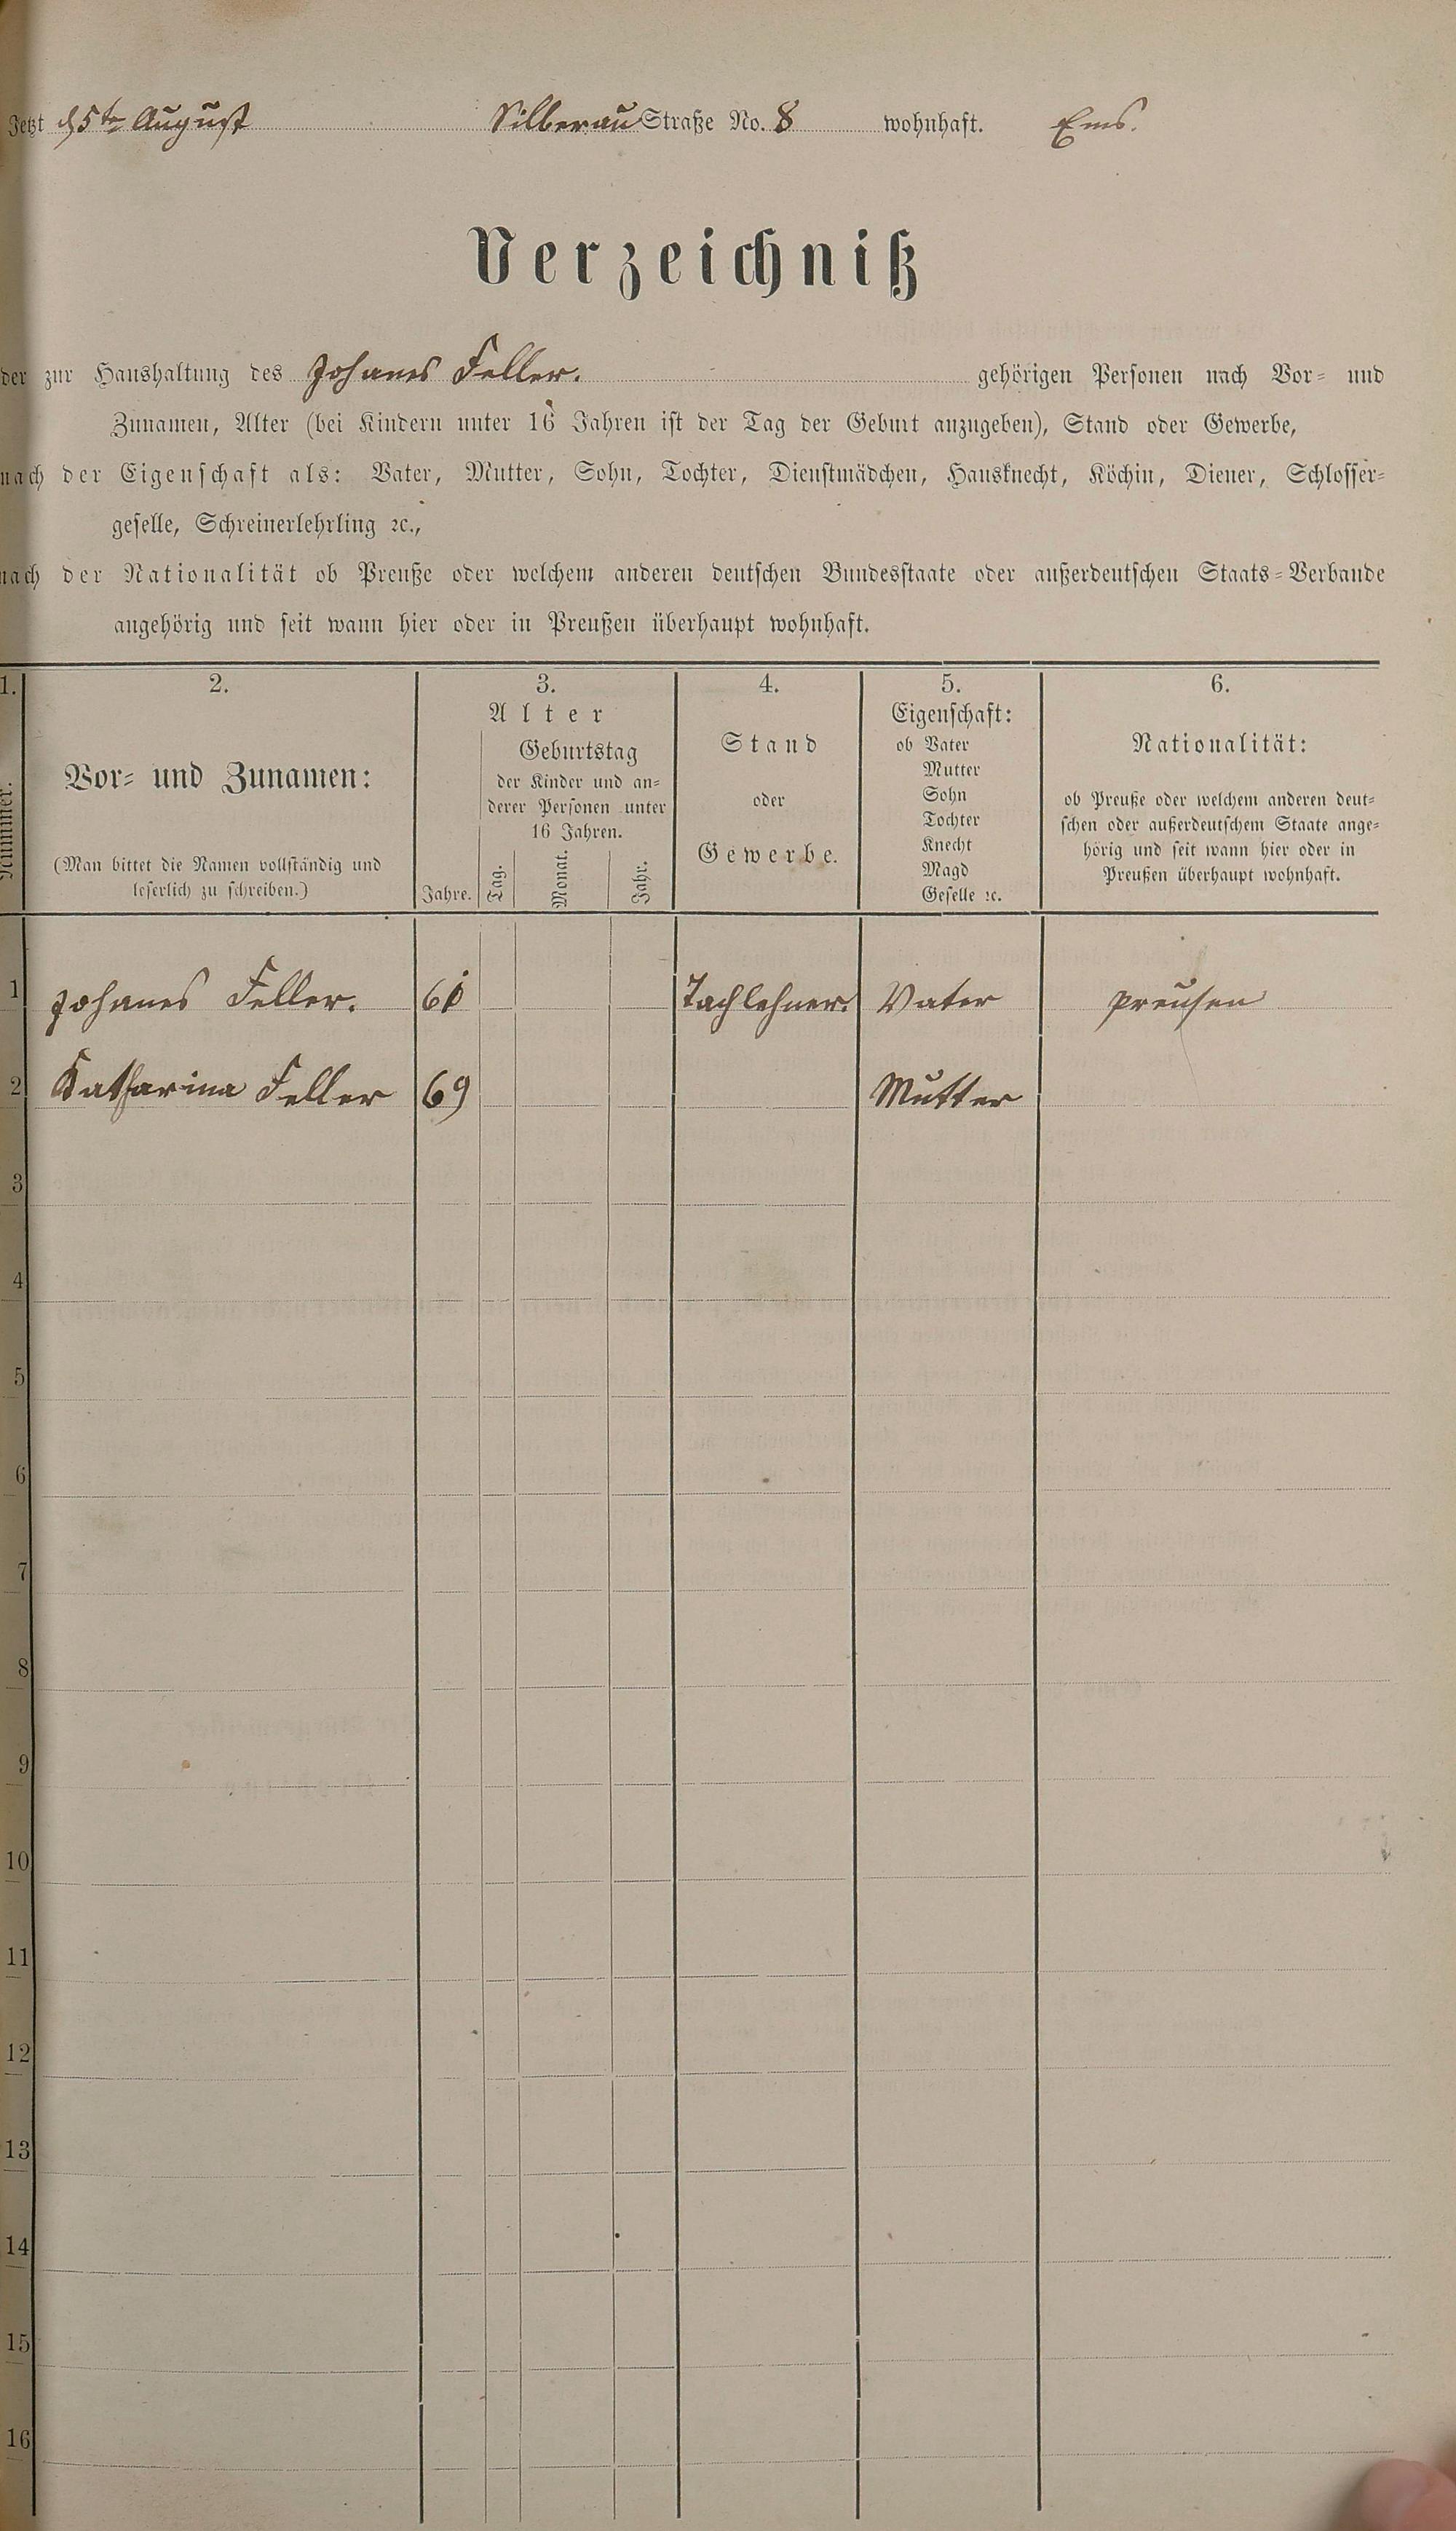 Jetzt d 5te August Silberau Straße No. 8 wohnhaft. Ems.
Verzeichniß
der zur Haushaltung des Johanes Feller. gehörigen Personen nach Vor- und
Zunamen, Alter (bei Kindern unter 16 Jahren ist der Tag der Geburt anzugeben), Stand oder Gewerbe,
nach der Eigenschaft als: Vater, Mutter, Sohn, Tochter, Dienstmädchen, Hausknecht, Köchin, Diener, Schlosser-
geselle, Schreinerlehrling ꝛc.,
nach der Nationalität ob Preuße oder welchem anderen deutschen Bundesstaate oder außerdeutschen Staats-Verbande
angehörig und seit wann hier oder in Preußen überhaupt wohnhaft.
1. 2. 3. 4. 5. 6.
Nummer.
Vor- und Zunamen:
(Man bittet die Namen vollständig und
leserlich zu schreiben.)
Alter
Jahre.
Geburtstag
der Kinder und an-
derer Personen unter
16 Jahren.
Tag. Monat. Jahr.
Stand
oder
Gewerbe.
Eigenschaft:
ob Vater
Mutter
Sohn
Tochter
Knecht
Magd
Geselle ꝛc.
Nationalität:
ob Preuße oder welchem anderen deut-
schen oder außerdeutschem Staate ange-
hörig und seit wann hier oder in
Preußen überhaupt wohnhaft.
1 Johanes Feller. Tachlehner. Vater preusen
2 Katharina Feller 69 Mutter
3
4
5
6
7
8
9
10
11
12
13
14
15
16